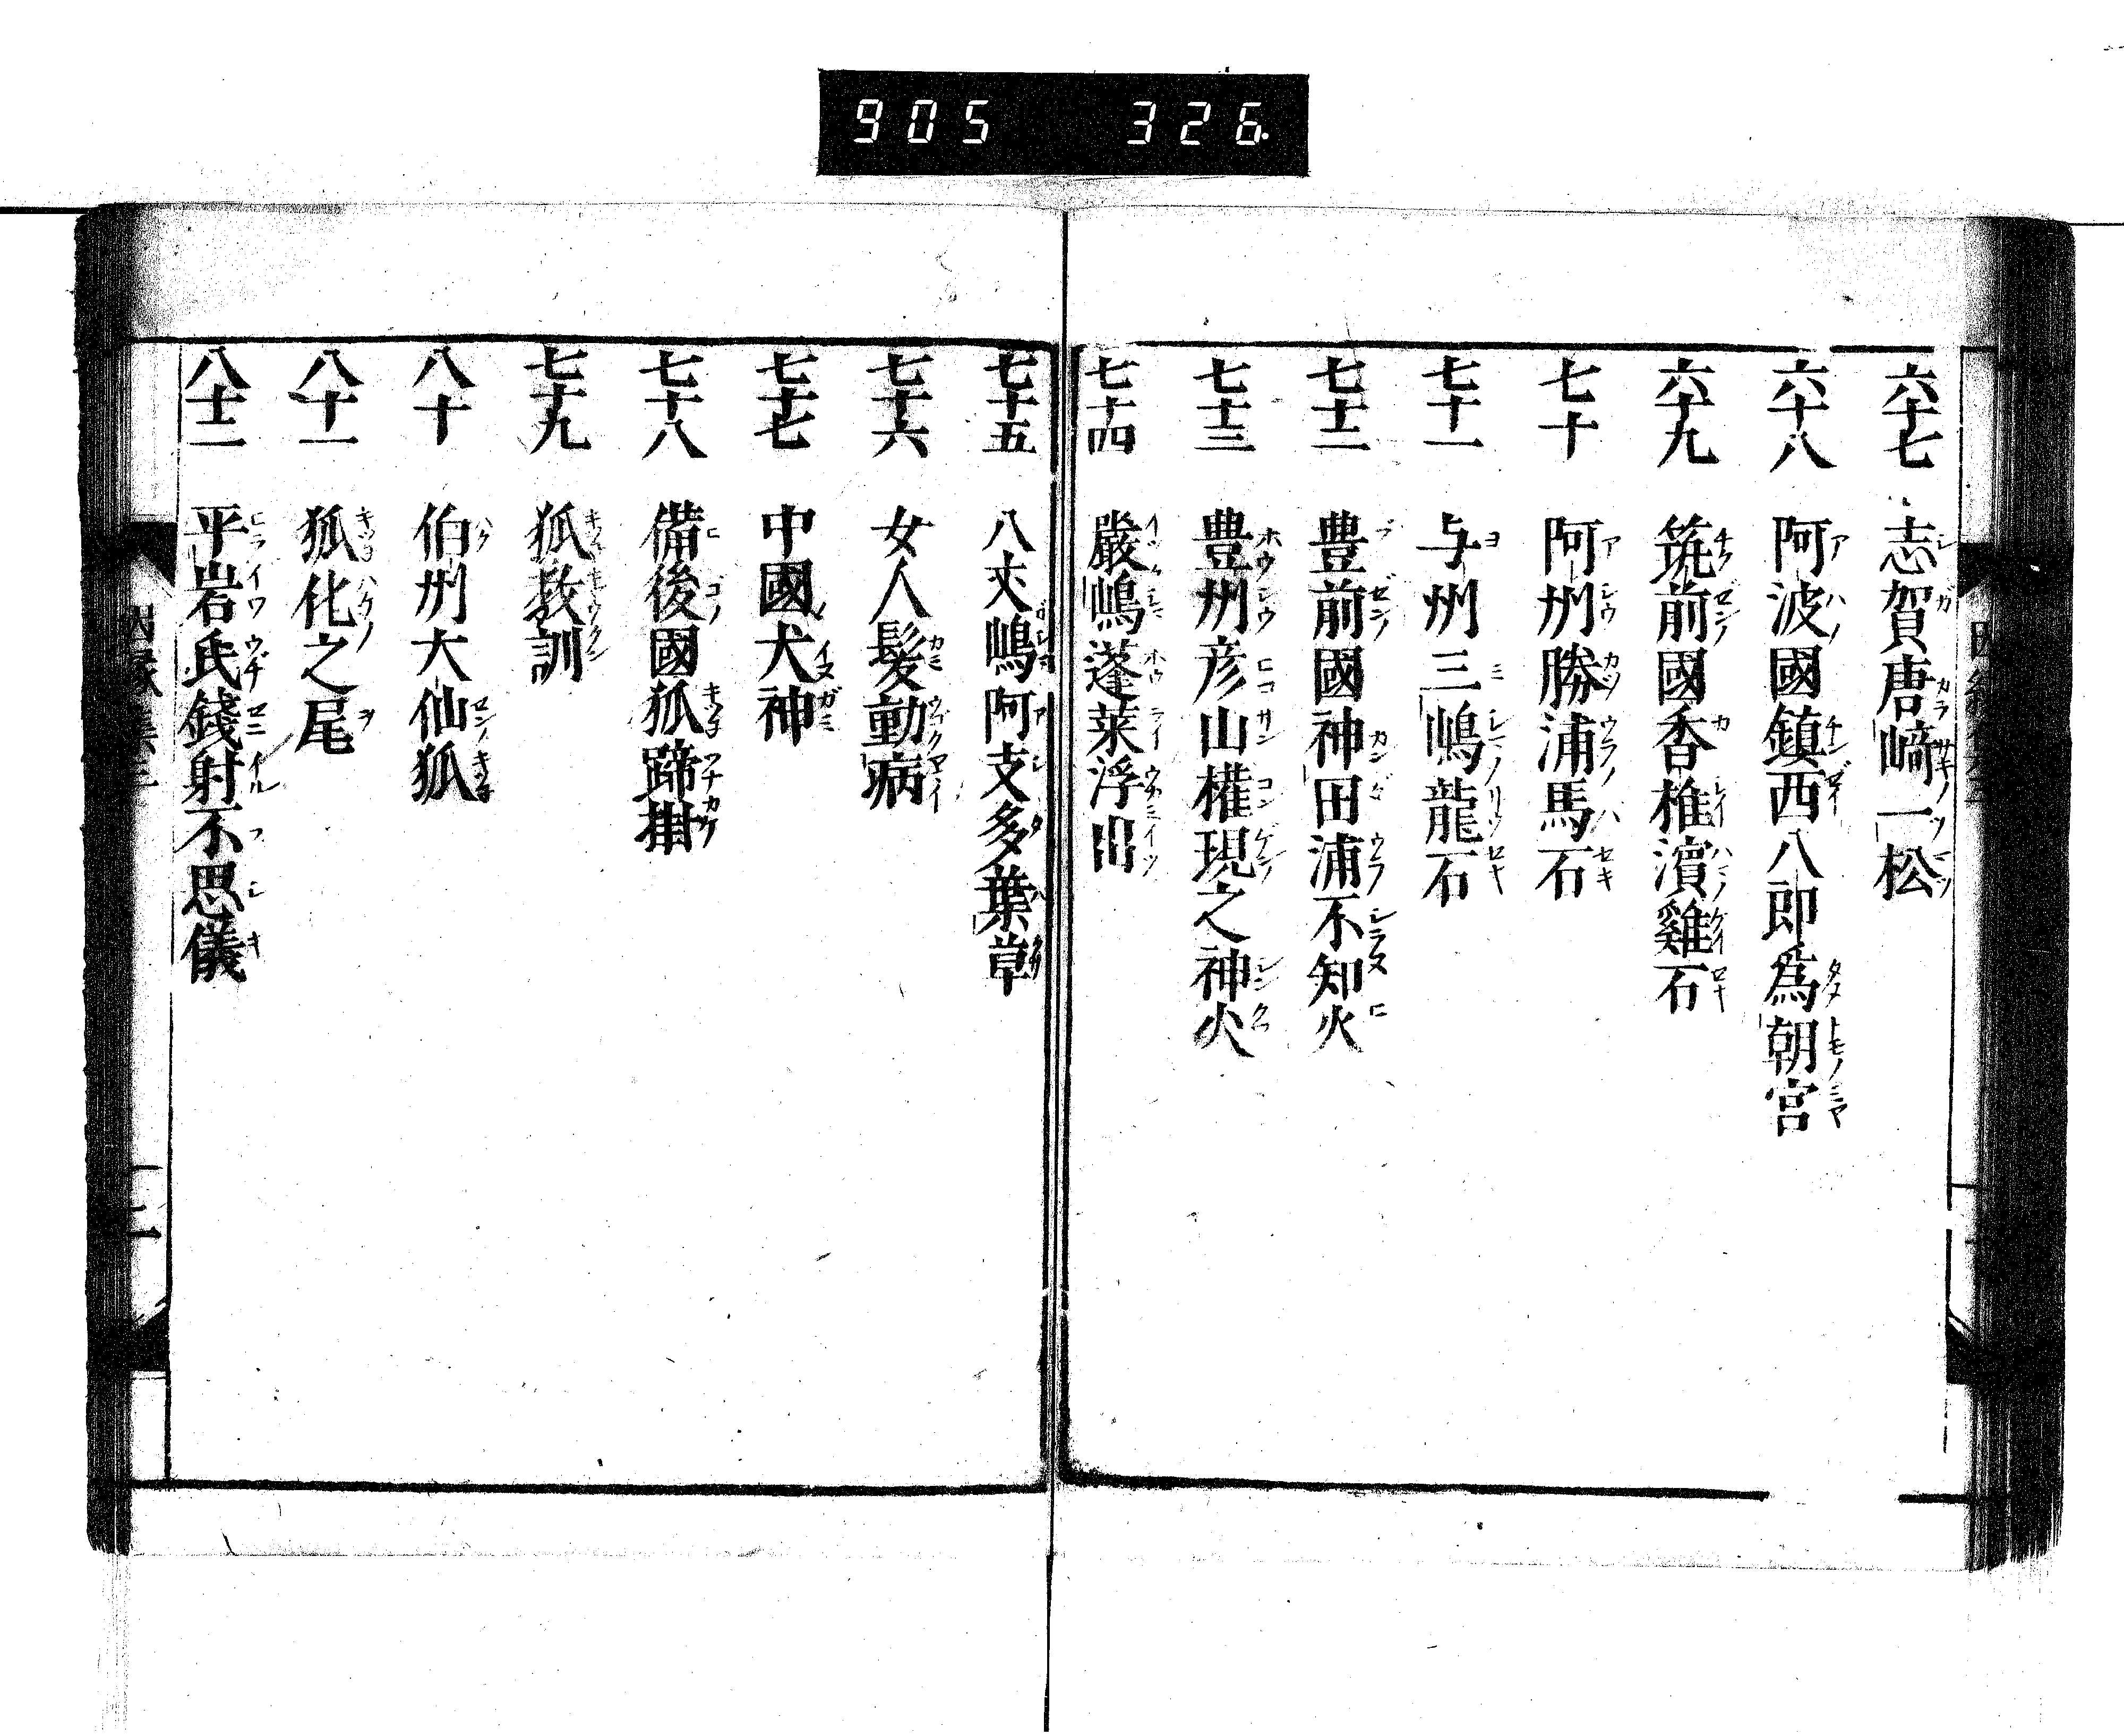 905 326
六十七 志賀唐﨑一松
六十八 阿波國鎮西八郎為朝宮
六十九 筑前國香椎濱雞石
七十 阿州勝浦馬石
七十一 与州三嶋龍石
七十二 豊前國神田浦不知火
七十三 豊州彦山權現之神火
七十四 嚴嶋蓬莱浮出
七十五 八丈嶋阿支多葉草
七十六 女人髮動病
七十七 中國犬神
七十八 備後國狐蹄掛
七十九 狐教訓
八十 伯州大仙狐
八十一 狐化之尾
八十二 平岩氏錢射不思儀